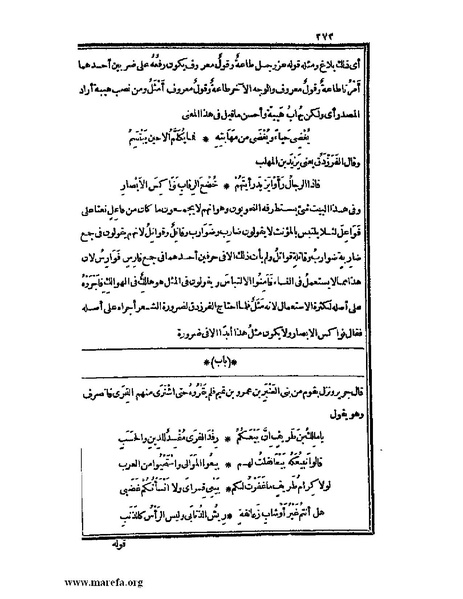 ٢٧٣
أى ذلك بلاغ ومثله قوله عز وجل طاعةٌ وقولٌ معروف يكون رفعُه على ضربين أحدهما
أمْرُنا طاعةٌ وقولٌ معروف والوجه الآخر طاعةٌ وقولٌ معروف أمْثَلُ ومن نصب هيبة أراد
المصدر أى ولكن يُهابُ هيبةً وأحسن ما قيل فى هذا المعنى
يُغْضِى حَياءً ويُغْضَى من مَهابَتِه * فما يُكَلَّمُ الا حين يَبْتَسِمُ
وقال الفَرَزْدَقُ يعنى يَزِيدَ بن المهلب
فاذا الرجالُ رَأَوا يزيدَ رأيتَهُمْ * خُضُعَ الرِقابِ نَوا كِسَ الأبْصارِ
وفى هذا البيت شئ يستطرفه النحويون وهو أنهم لا يجمعون ما كان من فاعلٍ نعتا على
فَواعلَ لئلا يلتبس بالمؤنث لا يقولون ضاربٌ وضَواربُ وقاتلٌ وقَواتلُ لانهم يقولون فى جمع
ضاربةٍ ضَواربُ وقاتلةٍ قَواتلُ ولم يأت ذلك الا فى حرفين أحدهما فى جمع فارسٍ فَوارسُ لان
هذا مما لا يستعمل فى النساء فأمِنُوا الالتباسَ ويقولون فى المثل هو هالكٌ فى الهوالكِ فأجْرَوْهُ
على أصله لكثرة الاستعمال لانه مَثَلٌ فلما احتاج الفرزدق لضرورة الشعر أجراه على أصله
فقال نوا كس الابصار ولا يكون مثلُ هذا أبدًا الا فى ضرورة
*(باب)*
قال جرير ونزل بقوم من بنى العَنْبَرِ بن عمرو بن تميم فلم يَقْرُوهُ حتى اشْتَرَى منهم القِرَى فانصرف
وهو يقول
يا مالكُ بنَ طَريفٍ إنَّ بَيْعَكُمُ * رِفْدَ القِرَى مُفْسِدٌ للدينِ والحَسَبِ
قالوا نَبِيعُكَهُ بَيْعًا فقلتُ لهم * بيعوا المَوالِىَ واسْتَحْيُوا من العرب
لولا كِرامُ طَرِيفٍ ما غَفَرْتُ لكم * بَيْعِى قِرَاىَ ولا أَنْسَأْتُكُمْ غَضَبِى
هل أنتمُ غيرُ أَوْشابٍ زَعانِفَةٍ * رِيشُ الذُنابَى وليس الرأْسُ كالذَنَبِ
قوله
www.marefa.org